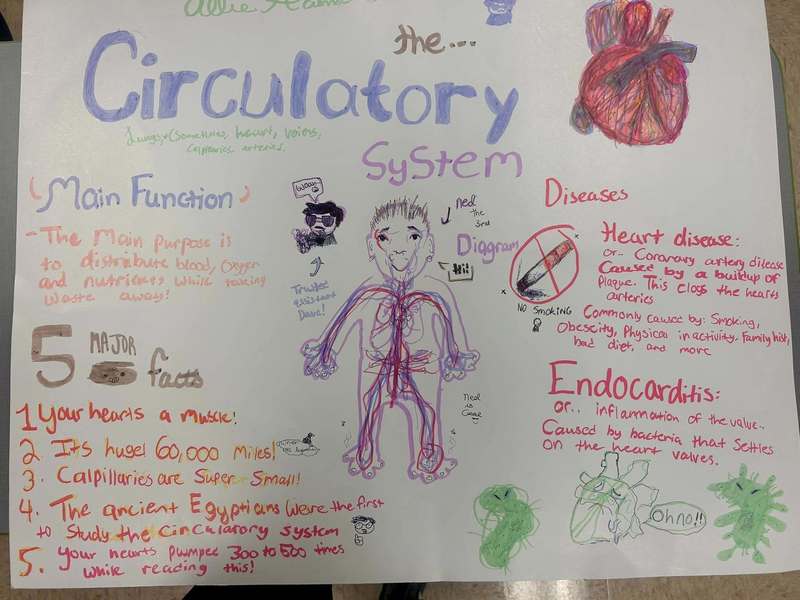 Allie
the...
Circulatory
System
Lungs,(Sometimes, heart, veiens,
Calpilaries. arteries.
(Main Function)
-The Main Purpose is
to distrabute blood, Oxyger
and nutrients while taking
waste away!
Woah
Trustee
assistant
Dave!
Ned
the
3rd
Diagram
Hi!
Ned
is
Cause
5 MAJOR
facts
1 Your hearts a Muscle!
2. Its huge! 60,000 Miles!
3. Calpillaries are Super Small!
4. The ancient Egyptians Were the first
to Study the circulatory system
5. Your hearts Pumped 300 to 500 times
while reading this!
Diseases
Heart disease:
or.. Coronary artery disease
Caused by a buildup of
Plaque. This clogs the hearts
arteries
NO SMOKING
Commonly caused by: Smoking,
Obescity, Physical inactivity, Family hist,
bad diet, and more
Endocarditis:
or.. inflamnation of the valve..
Caused by bacteria that Settles
on the heart valves.
Oh no!!